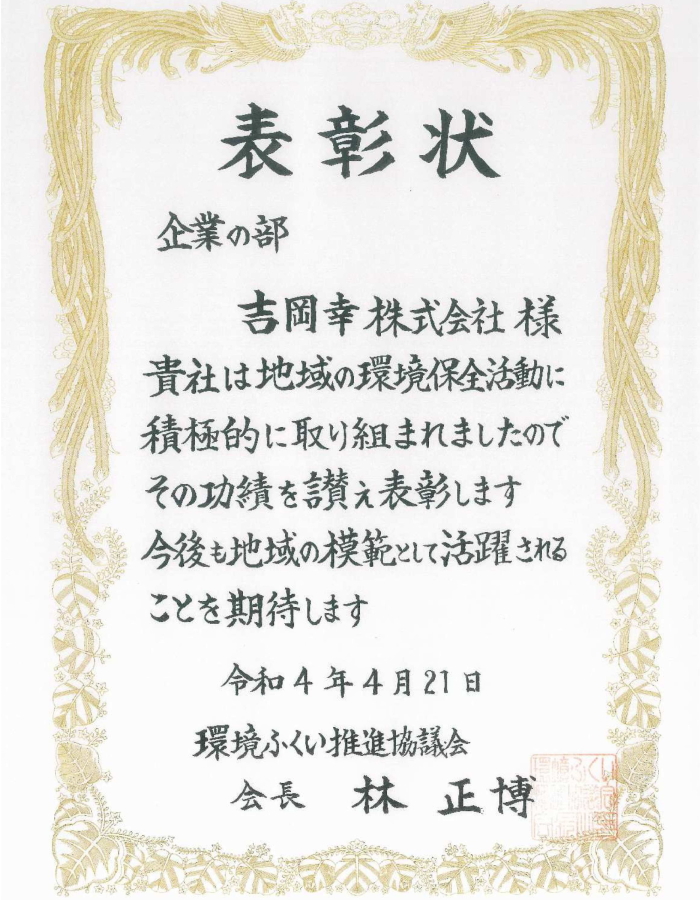 表彰状
企業の部
吉岡幸株式会社 様
貴社は地域の環境保全活動に
積極的に取り組まれましたので
その功績を讃え表彰します
今後も地域の模範として活躍される
ことを期待します
令和4年4月21日
環境ふくい推進協議会
会長 林 正博